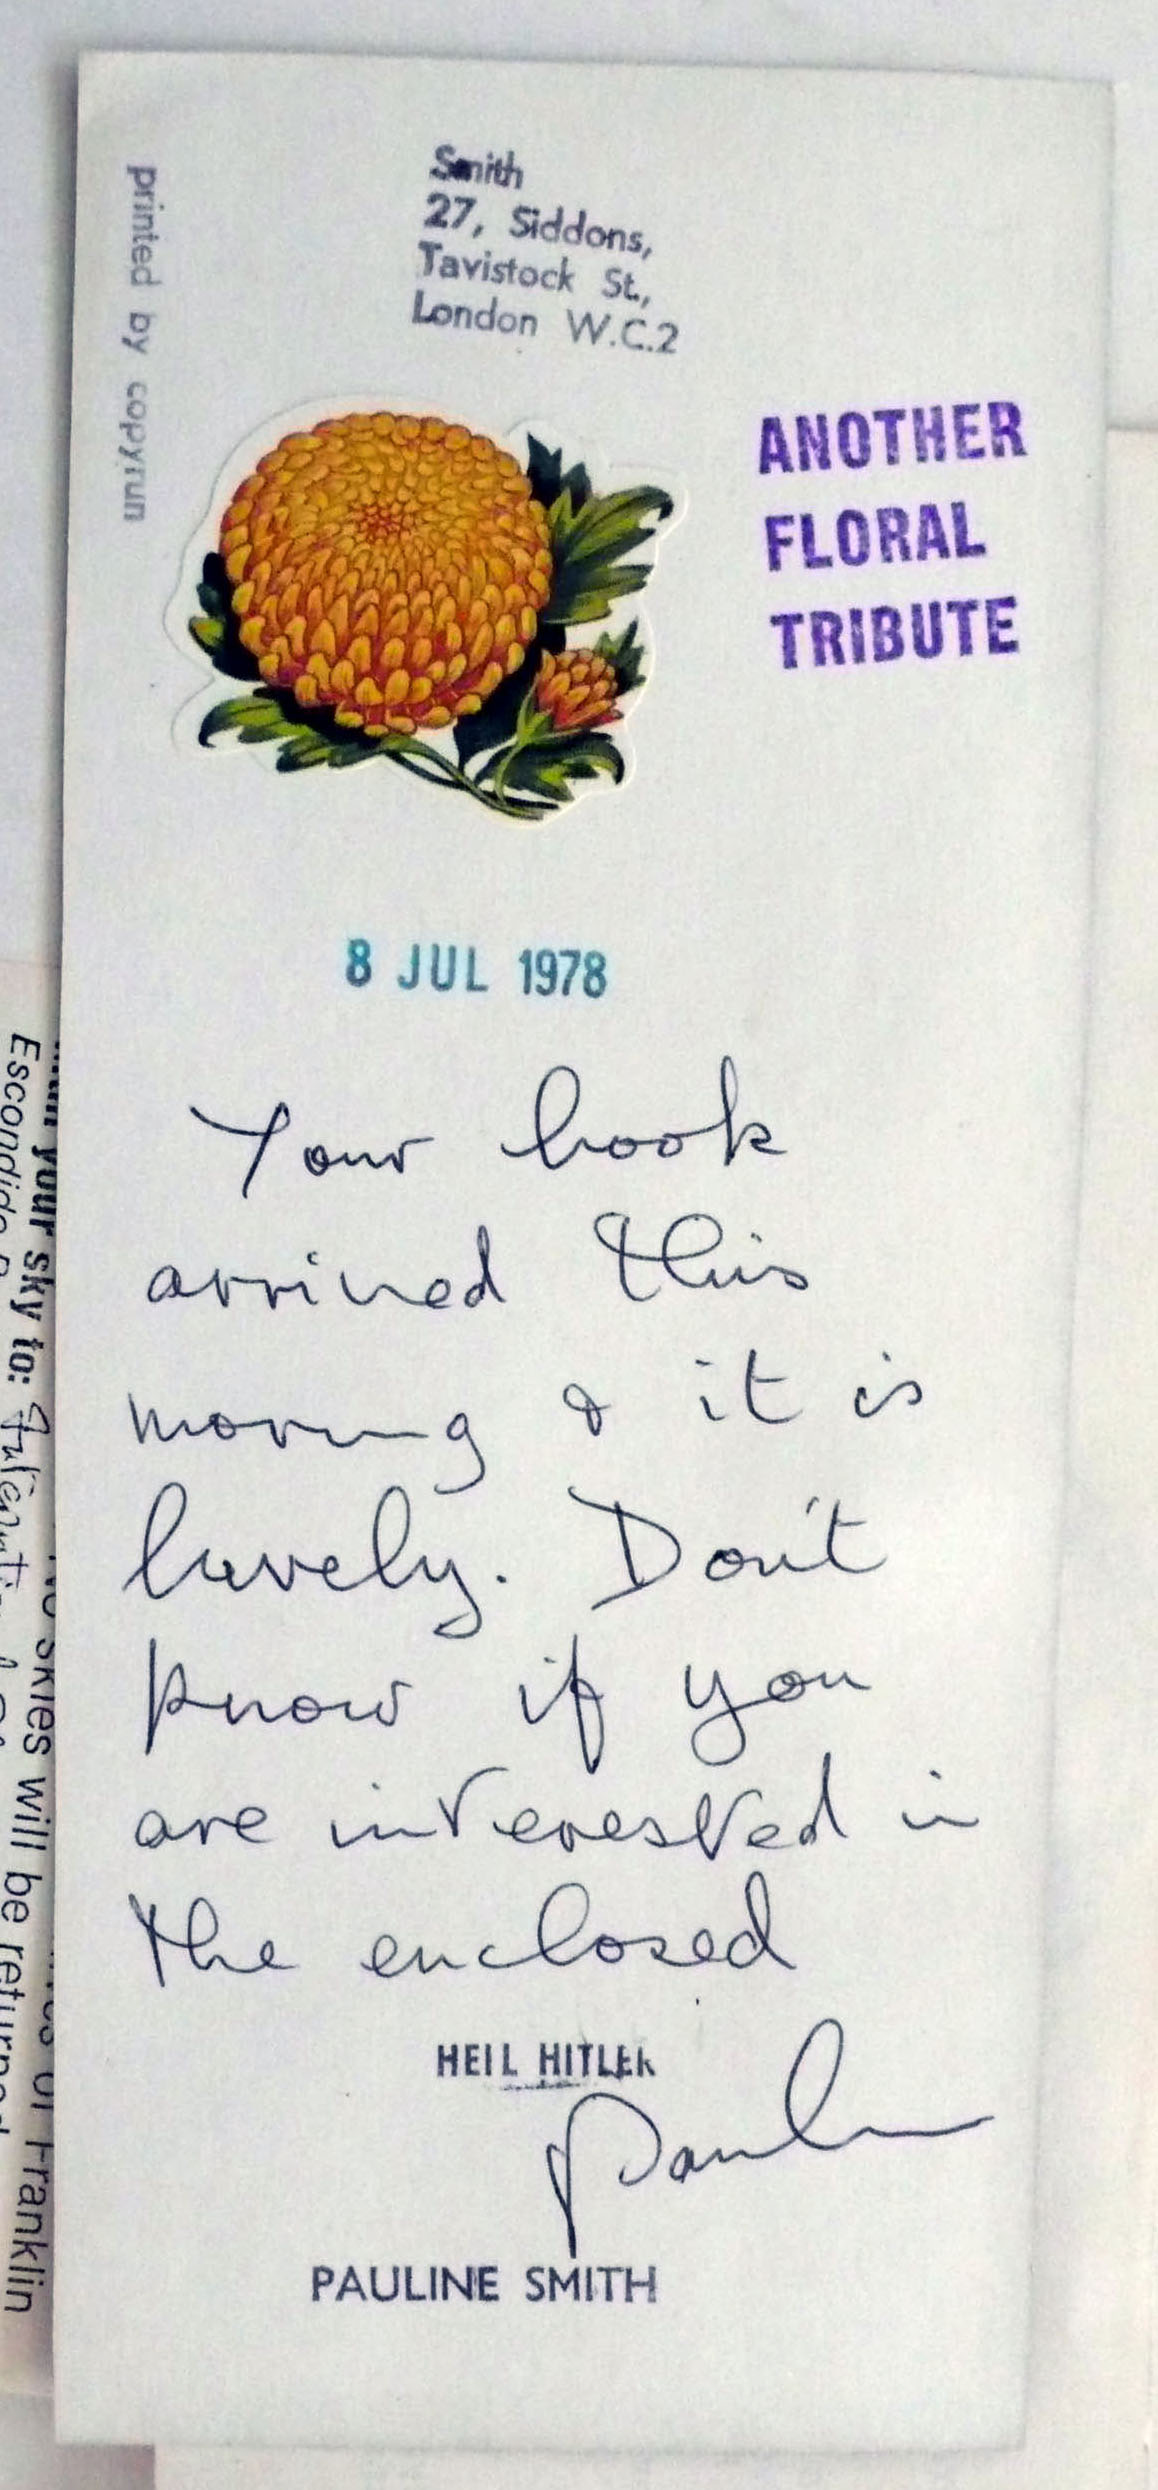 Smith
27, Siddons,
Tavistock St.,
London W.C.2
printed by copyrun
ANOTHER
FLORAL
TRIBUTE
8 JUL 1978
Your book
arrived this
morning & it is
lovely. Don't
know if you
are interested in
the enclosed
HEIL HITLER
Pauline
PAULINE SMITH
your sky to:
skies will be returned
of Franklin